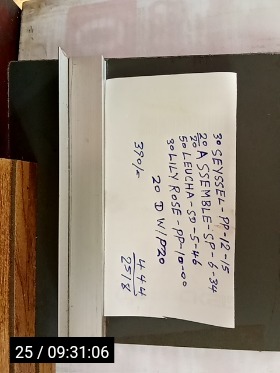 30 SEYSSEL-PP-12-15
20 ASSEMBLE-SP-6-34
50 LEUCHA-SD-5-46
30 LILY ROSE-PP-10-00
20 D W/P20
390/-
444
2518
25 / 09:31:06